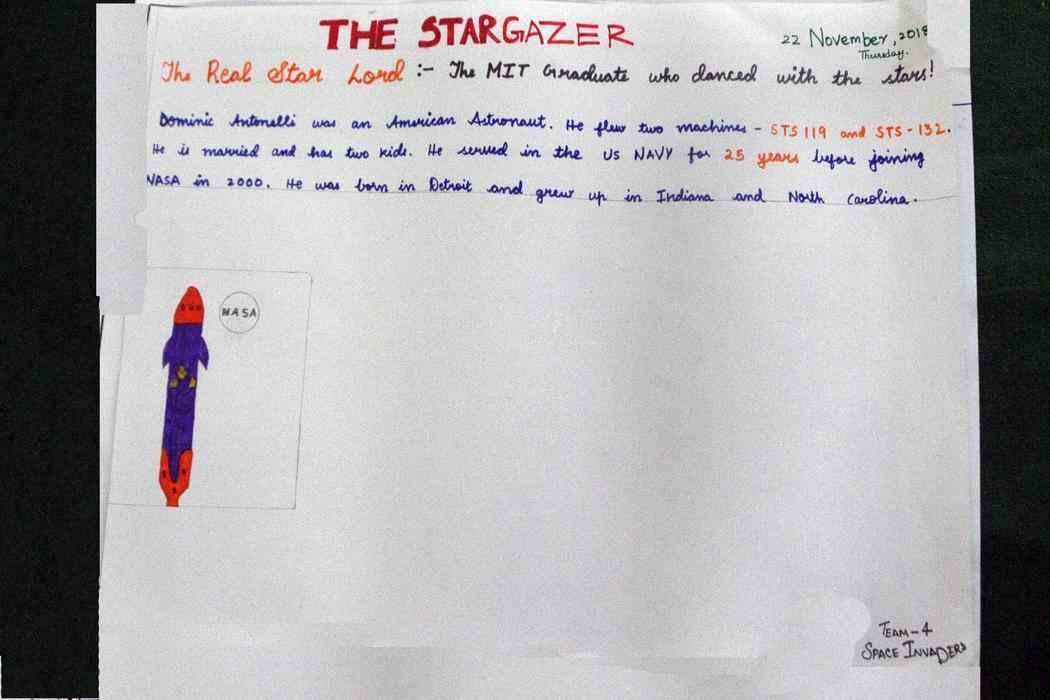 THE STARGAZER
22 November, 2018
Thursday.
The Real Star Lord :- The MIT Graduate who danced with the stars!
Dominic Antonelli was an American Astronaut. He flew two machines - STS 119 and STS - 132.
He is married and has two kids. He served in the US NAVY for 25 years before joining
NASA in 2000. He was born in Detroit and grew up in Indiana and North Carolina.
NASA
TEAM - 4
SPACE INVADERS